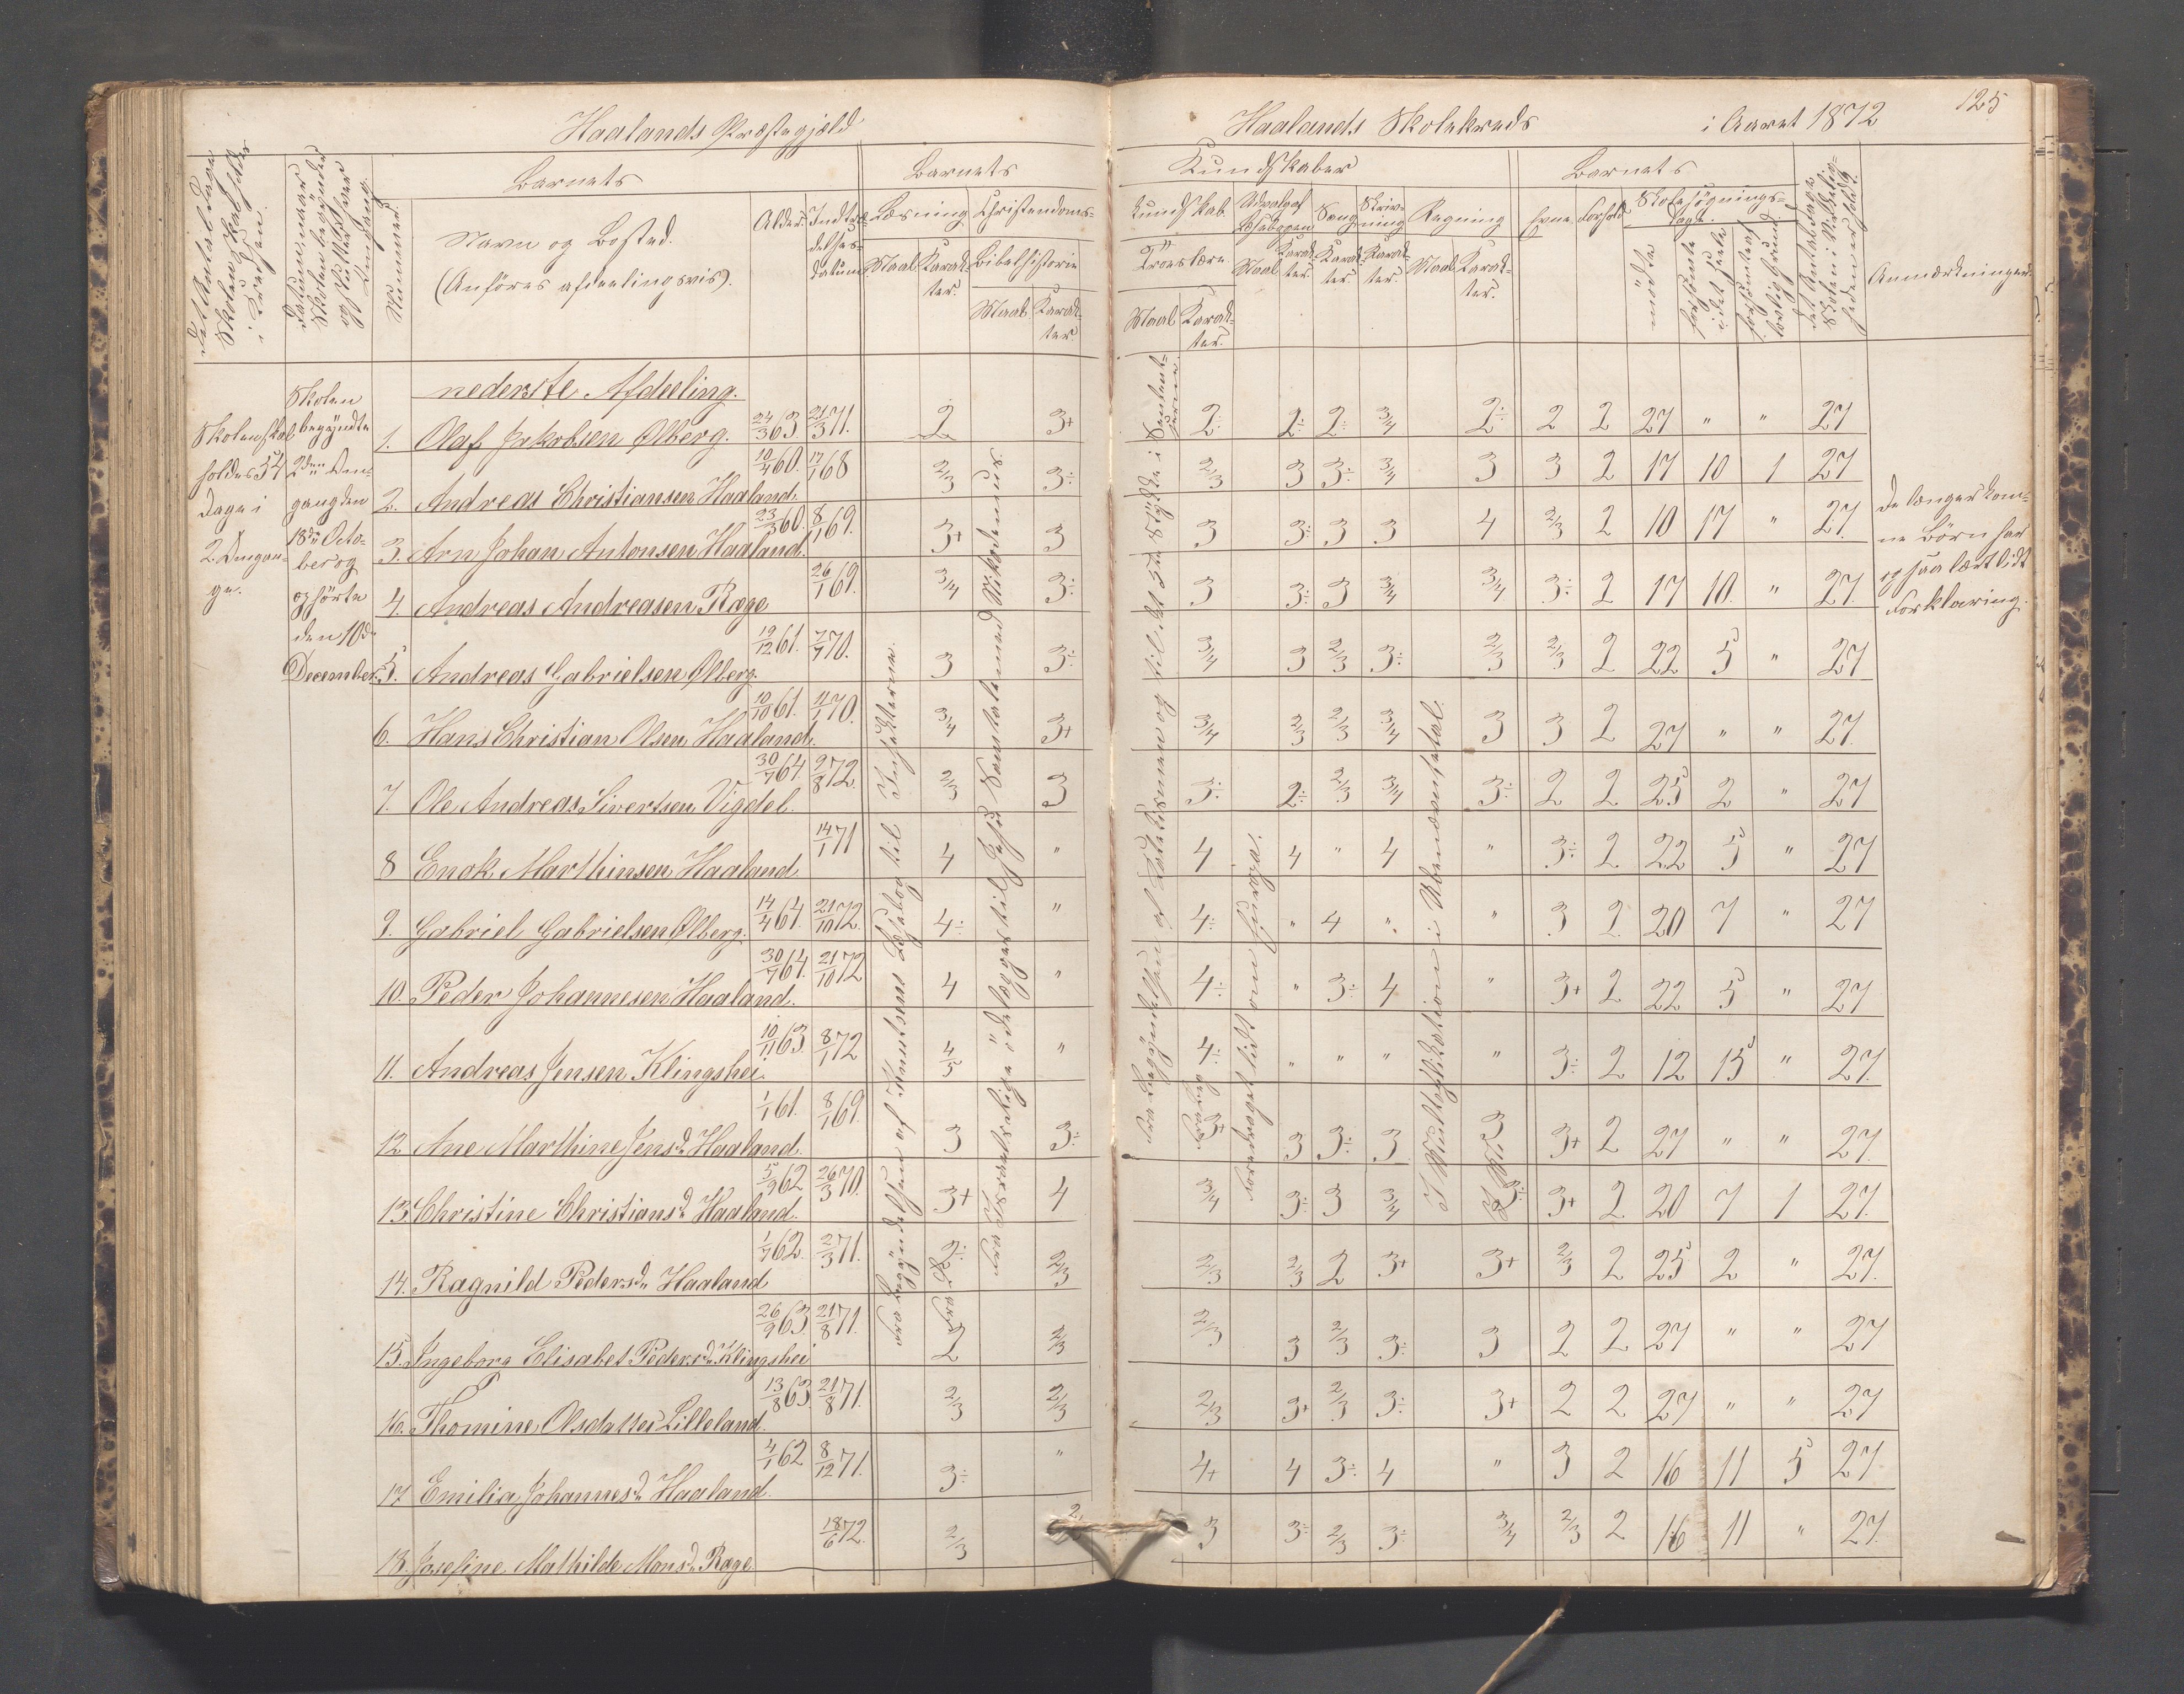 Haalands Præstegjæld
Haalands Skolekreds
i Aaret 1872
125
Det Antal Dage Skolen skal holdes i Kredsen.
Datum, naar Skolen begynder og slutter hver Omgang.
Nummer.
Barnets
Navn og Bosted.
(Anføres afdeelingsvis).
Alder.
Indtrædelsesdatum
Barnets
Kundskaber
Læsning
Maal
Karakter.
Christendoms-
kundskab.
Bibelhistorie
Maal
Karakter.
Troeslære
Maal
Karakter.
Udvalg af Læsebogen
Maal
Karakter.
Sang
Karakter.
Skrivning
Karakter.
Regning
Maal
Karakter.
Barnets
Evne.
Forhold
Skolesøgningsdage.
mødte
forsømte i det Hele
forsømte af lovlig Grund.
Det Antal Dage Skolen i Virkeligheden er holdt.
Anmærkninger.
Skolen skal
holdes 54
Dage i
2 Omgan-
ge.
Skolen
begyndte
2den Om-
gang den
18de Octo-
ber og
ophørte
den 10de
December.
nederste Afdeeling.
1. Olaf Jakobsen Ølberg. 24/3 63 21/3 71. 2 3+ 2: 2÷ 2÷ 3/4 2÷ 2 2 27 " " 27
2. Andreas Christiansen Haaland. 10/4 60. 17/1 68 2/3 3÷ 2/3 3 3÷ 3/4 3 3 2 17 10 1 27
3. Arn Johan Antonsen Haaland. 23/3 60. 8/1 69. 3+ 3 3 3÷ 3 3 4 2/3 2 10 17 " 27.
4. Andreas Andreasen Ræge 26/1 69. 3/4 3÷ 3 3÷ 3 3/4 3/4 3÷ 2 17 10. " 27.
5. Andreas Gabrielsen Ølberg. 19/12 61. 7/7 70. 3 3÷ 3/4 3 2/3 3÷ 2/3 2/3 2 22 5 " 27
6. Hans Christian Olsen Haaland. 10/10 61. 11/1 70. 3/4 3+ 3/4 2/3 2/3 3/4 3 3 2 27 " " 27.
7. Ole Andreas Sivertsen Vigdel. 30/7 64. 9/8 72. 2/3 3 3÷ 2÷ 2/3 3/4 3÷ 2 2 25 2 " 27
8 Enok Marthinsen Haaland 14/1 71 4 " 4 4 " 4 " 3÷ 2 22 5 " 27
9. Gabriel Gabrielsen Ølberg. 14/4 64. 21/10 72. 4÷ " 4÷ " 4 " " 3 2 20 7 " 27
10. Peder Johannesen Haaland. 30/7 64. 21/10 72 4 " 4÷ " 3÷ 4 " 3+ 2 22 5 " 27
11. Andreas Jensen Klingshei. 10/11 63. 8/1 72 4/5 " 4÷ " " " " 3÷ 2 12 15 " 27.
12 Ane Marthine Jensd. Haaland. 1/1 61. 8/1 69. 3 3÷ 3+ 3 3÷ 3 3 3+ 2 27 " " 27.
13. Christine Christiansd. Haaland. 5/9 62 26/3 70. 3+ 4 3/4 3÷ 3 3/4 3÷ 3+ 2 20 7 1 27.
14. Ragnild Pedersd. Haaland 1/7 62. 2/3 71. 2÷ 2/3 2/3 2/3 2 3+ 3+ 2/3 2 25 2 " 27.
15. Ingeborg Elisabet Pedersd. Klingshei 26/9 63. 21/8 71. 2 2/3 2/3 3 2/3 3÷ 3 2 2 27 " " 27
16. Thomine Olsdatter Lilleland. 13/8 63 21/8 71. 2/3 2/3 2/3 3+ 2/3 3÷ 3+ 2 2 27 " " 27
17. Emilia Johannesd. Haaland. 4/1 62 8/12 71. 3÷ " 4+ 4 3÷ 4 " 3 2 16 11 5 27
18. Josefine Mathilde Monsd. Ræge 18/6 72. 2/3 3 3÷ 2/3 3÷ 3/4 2/3 2 16 11 " 27.
Fra Begyndelsen af Knutsens Læsebog til Insekterne.
Fra Israeliternes Jesu Samtale med Nikodemus.
Fra Begyndelsen af Katekismen og til det 5te Stykke i
Foredraget lidt om Europa.
I Multiplikation i Ubenævntetal.
De længer kom-
ne Børn har
ogsaa lært lidt
Forklaring.